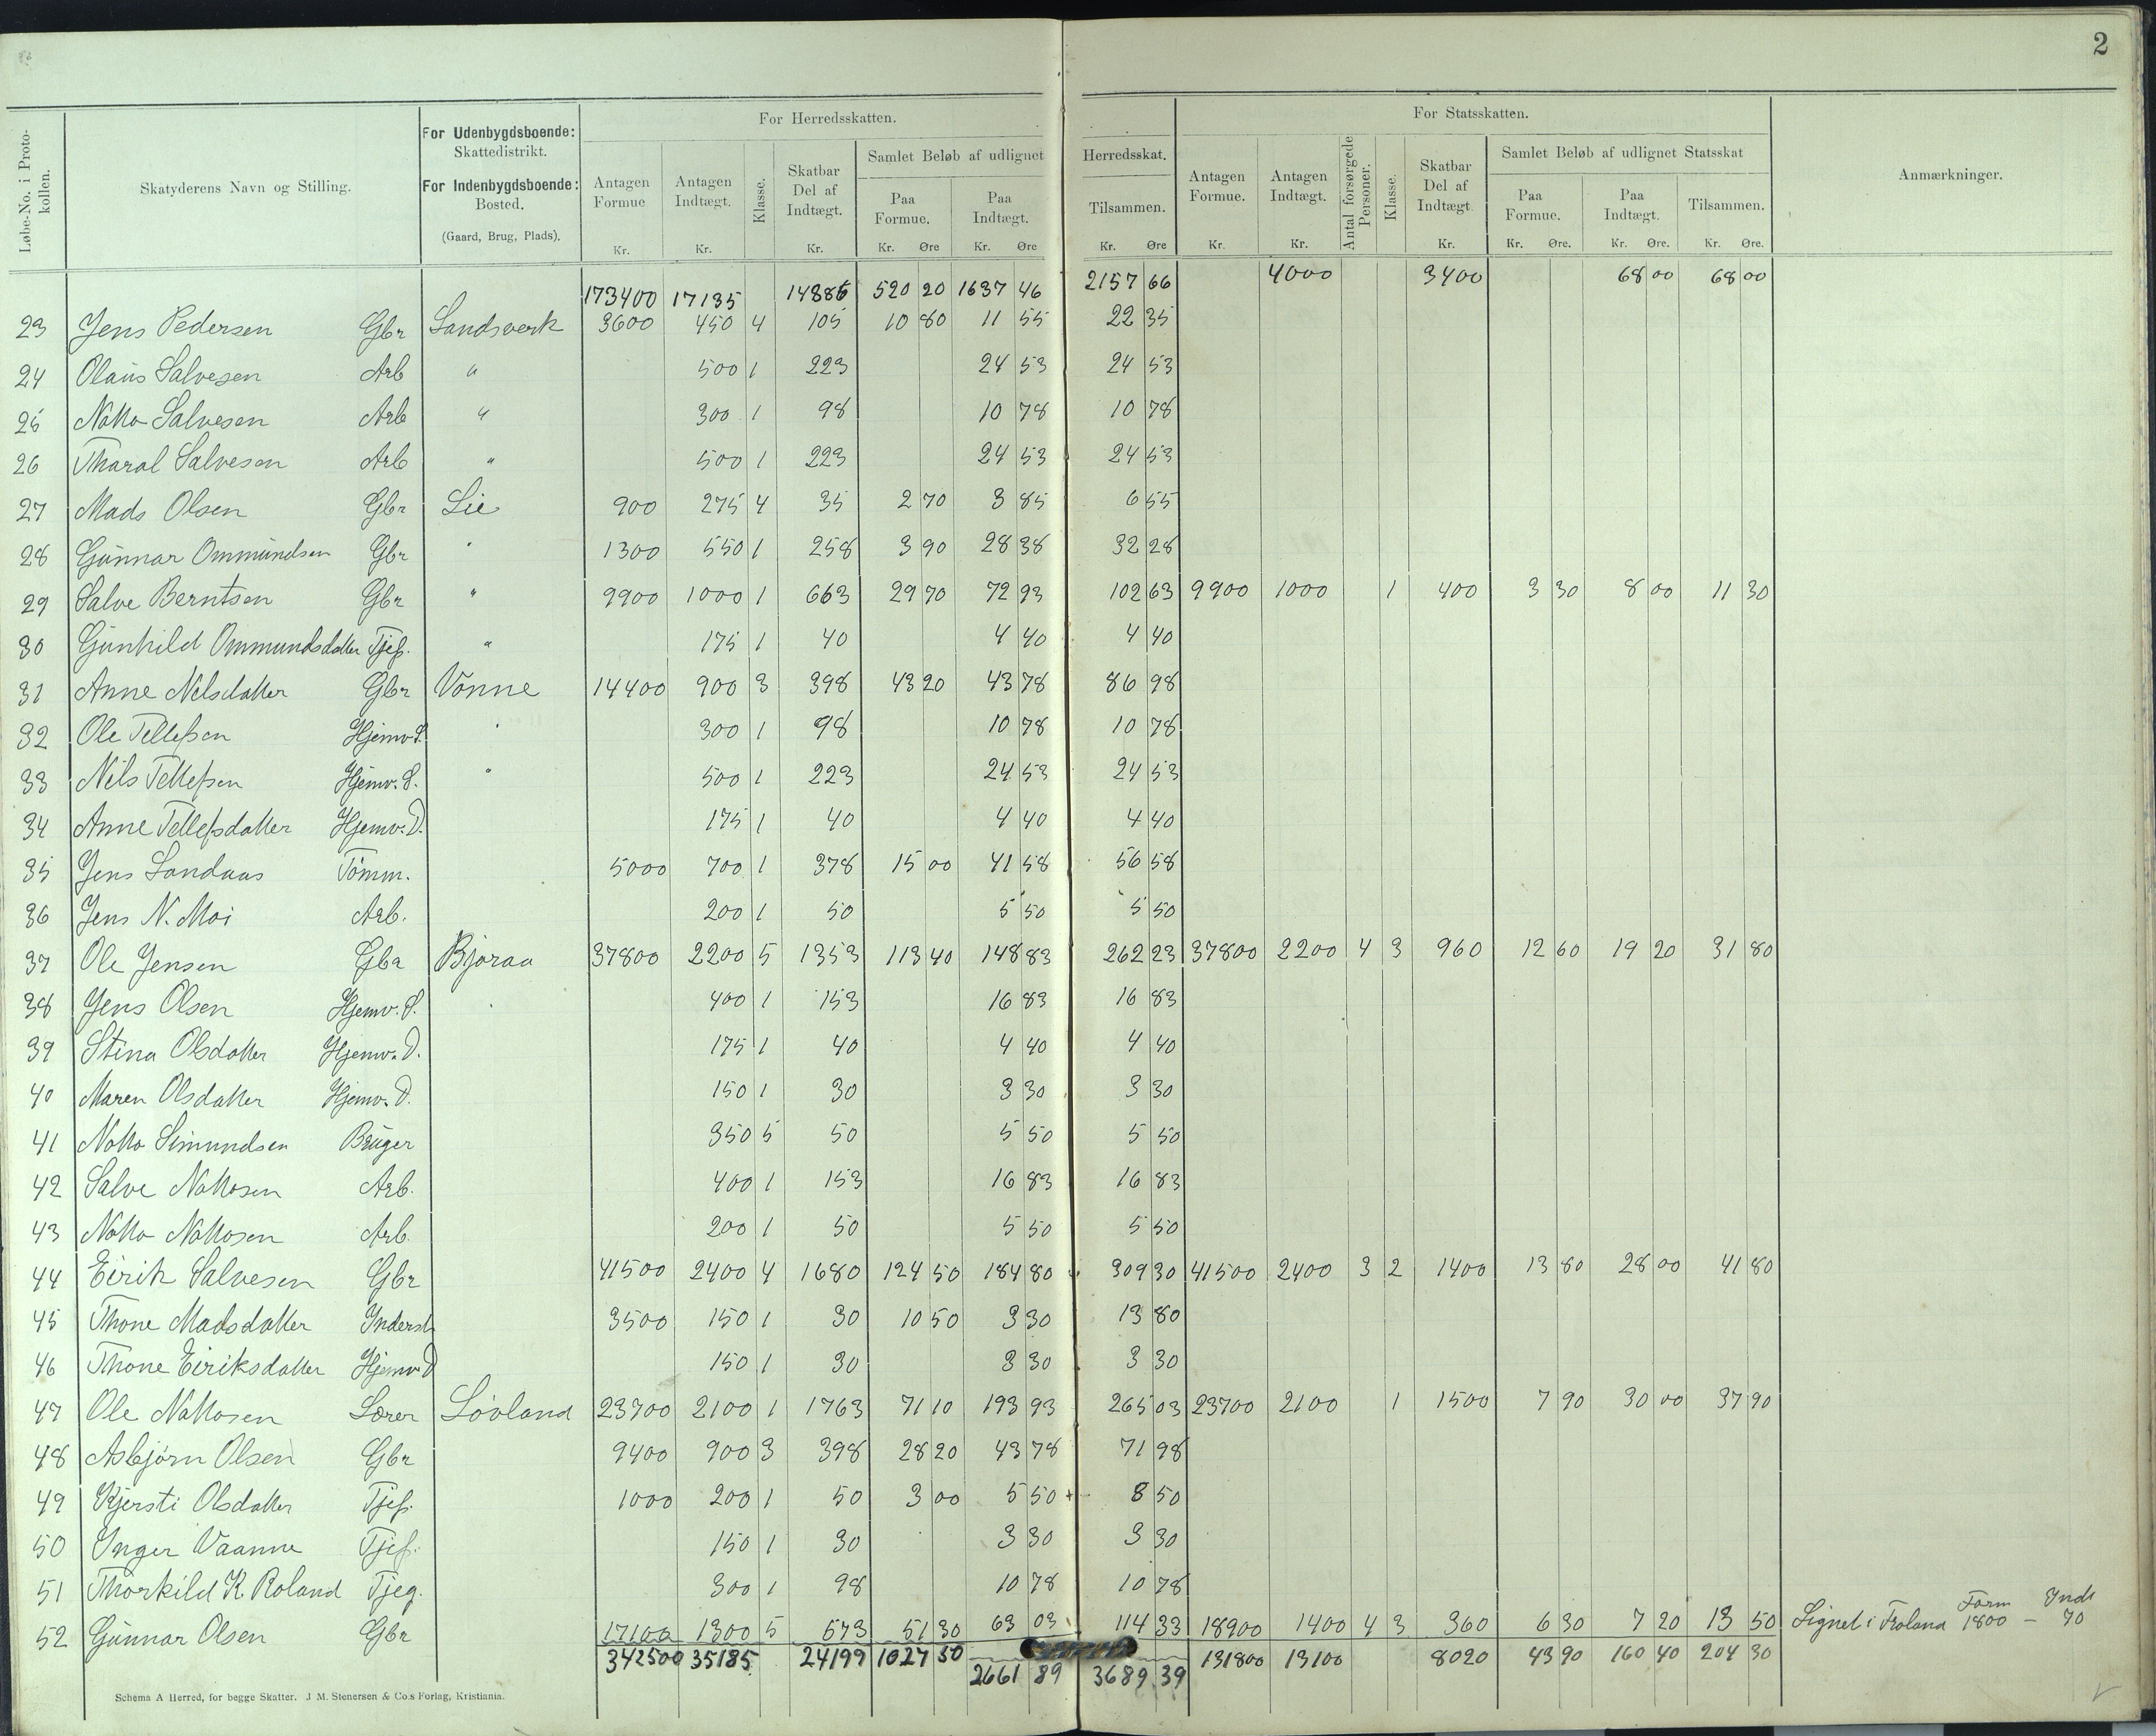 2
Løbe-No. i Protokollen.
Skatyderens Navn og Stilling.
For Udenbygdsboende: Skattedistrikt.
For Indenbygdsboende: Bosted.
(Gaard, Brug, Plads).
For Herredsskatten.
Antagen Formue Kr.
Antagen Indtægt. Kr.
Klasse.
Skatbar Del af Indtægt. Kr.
Samlet Beløb af udlignet Herredsskat.
Paa Formue. Kr. Øre
Paa Indtægt. Kr. Øre
Tilsammen. Kr. Øre
For Statsskatten.
Antagen Formue. Kr.
Antagen Indtægt. Kr.
Antal forsørgede Personer.
Klasse.
Skatbar Del af Indtægt Kr.
Samlet Beløb af udlignet Statsskat
Paa Formue. Kr. Øre.
Paa Indtægt. Kr. Øre.
Tilsammen. Kr. Øre.
Anmærkninger.
173400 17135 14886 520 20 1637 46 2157 66 4000 3400 68 00 68 00
23 Jens Pedersen Gbr Landsverk 3600 450 4 105 10 80 11 55 22 35
24 Olaus Salvesen Arb " 500 1 223 24 53 24 53
25 Notto Salvesen Arb " 300 1 98 10 78 10 78
26 Tharal Salvesen Arb " 500 1 223 24 53 24 53
27 Mads Olsen Gbr Lie 900 275 4 35 2 70 3 85 6 55
28 Gunnar Ommundsen Gbr " 1300 550 1 258 3 90 28 38 32 28
29 Salve Berntsen Gbr " 9900 1000 1 663 29 70 72 93 102 63 9900 1000 1 400 3 30 8 00 11 30
30 Gunhild Ommundsdatter Tjeg. " 175 1 40 4 40 4 40
31 Anne Nilsdatter Gbr Vonne 14400 900 3 398 43 20 43 78 86 98
32 Ole Tellefsen Hjemv. S. " 300 1 98 10 78 10 78
33 Nils Tellefsen Hjemv. S. " 500 1 223 24 53 24 53
34 Anne Tellefsdatter Hjemv. D. 175 1 40 4 40 4 40
35 Jens Landaas Tømm. 5000 700 1 378 15 00 41 58 56 58
36 Jens N. Moi Arb. 200 1 50 5 50 5 50
37 Ole Jensen Gbr Bjoraa 37800 2200 5 1353 113 40 148 83 262 23 37800 2200 4 3 960 12 60 19 20 31 80
38 Jens Olsen Hjemv. S. " 400 1 153 16 83 16 83
39 Stina Olsdatter Hjemv. D. 175 1 40 4 40 4 40
40 Maren Olsdatter Hjemv. D. 150 1 30 3 30 3 30
41 Notto Simundsen Bruger 350 5 50 5 50 5 50
42 Salve Nottosen Arb. 400 1 153 16 83 16 83
43 Notto Nottosen Arb. 200 1 50 5 50 5 50
44 Eirik Salvesen Gbr 41500 2400 4 1680 124 50 184 80 309 30 41500 2400 3 2 1400 13 80 28 00 41 80
45 Thone Madsdatter Inderst 3500 150 1 30 10 50 3 30 13 80
46 Thone Eiriksdatter Hjemv D 150 1 30 3 30 3 30
47 Ole Nottosen Lærer Lövland 23700 2100 1 1763 71 10 193 93 265 03 23700 2100 1 1500 7 90 30 00 37 90
48 Asbjørn Olsen Gbr 9400 900 3 398 28 20 43 78 71 98
49 Kjersti Olsdatter Tjeg. 1000 200 1 50 3 00 5 50 + 8 50
50 Inger Vaanne Tjeg. 150 1 30 3 30 3 30
51 Thorkild K. Roland Tjeg. 300 1 98 10 78 10 78
52 Gunnar Olsen Gbr 17100 1300 5 573 51 30 63 03 114 33 18900 1400 4 3 360 6 30 7 20 13 50 Lignet i Froland Form 1800 – Indt 70
342500 35185 24199 1027 50 2661 89 3689 39 131800 13100 8020 43 90 160 40 204 30
Schema A Herred, for begge Skatter. J M. Stenersen & Co.s Forlag, Kristiania.